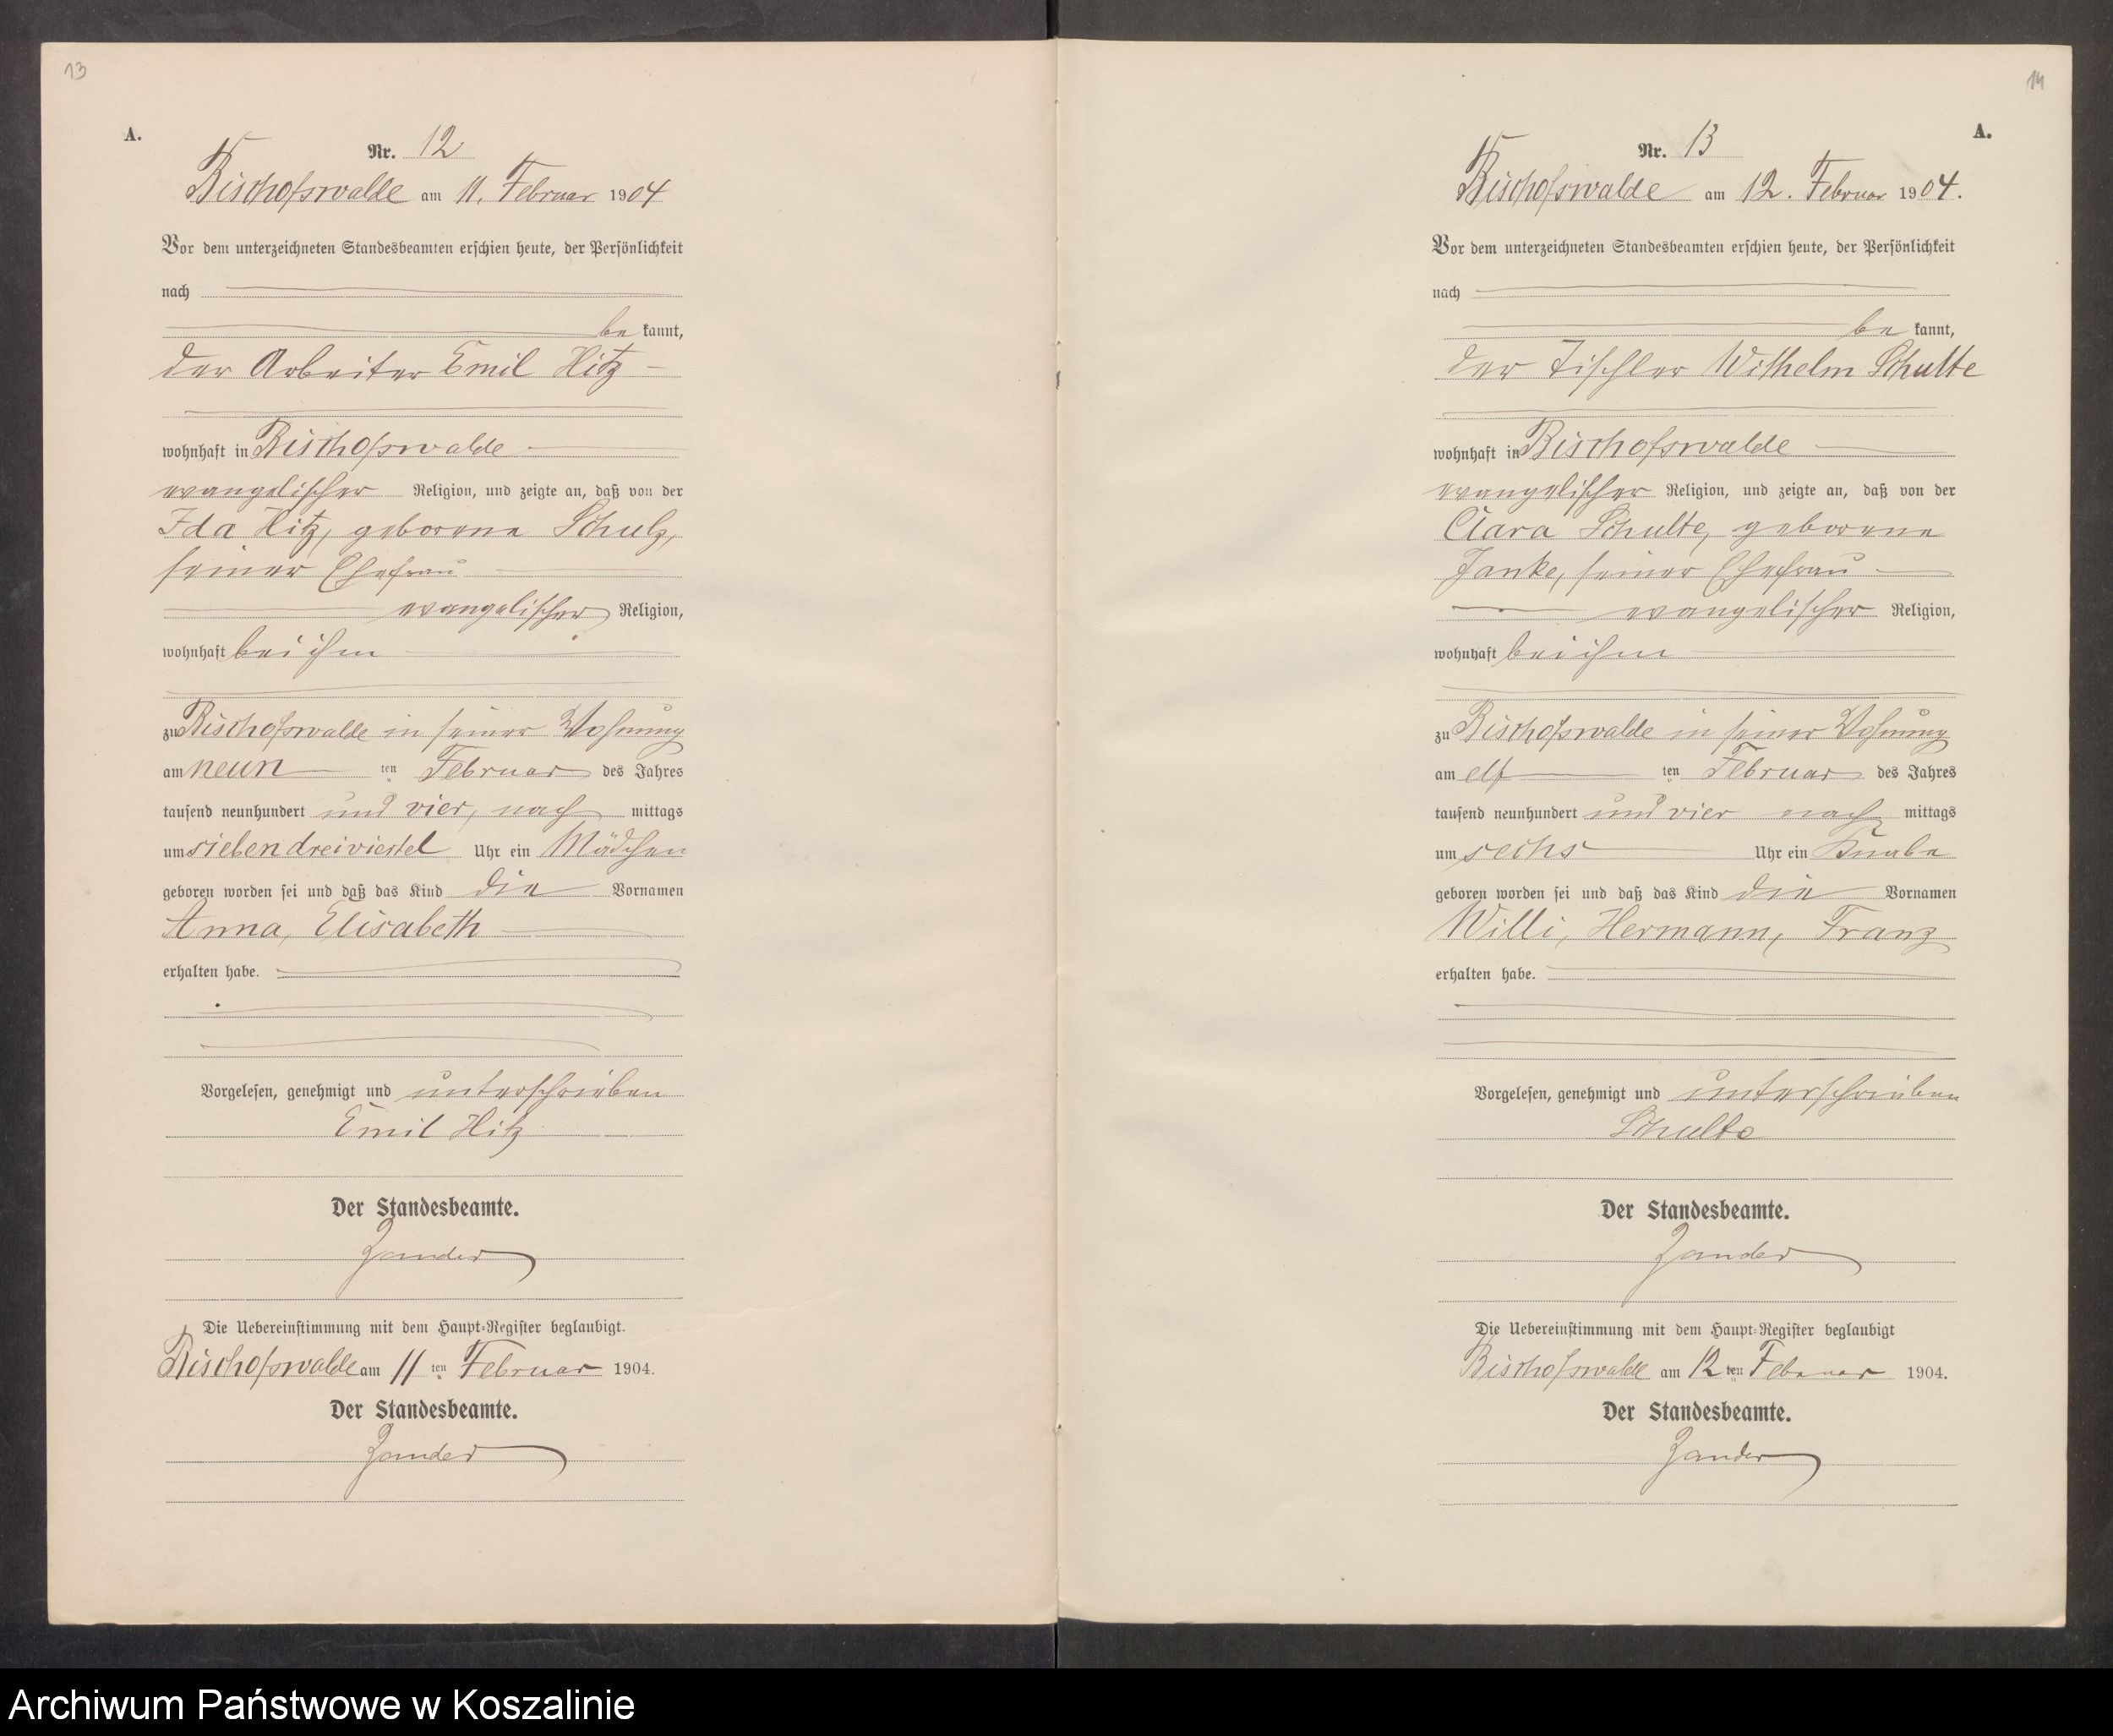 13
A.
Nr. 12
Bischofswalde am 11. Februar 1904
Vor dem unterzeichneten Standesbeamten erschien heute, der Persönlichkeit
nach
be kannt,
der Arbeiter Emil Hitz
wohnhaft in Bischofswalde
evangelischer Religion, und zeigte an, daß von der
Ida Hitz, geborene Schulz,
seiner Ehefrau
evangelischer Religion,
wohnhaft bei ihm
zu Bischofswalde in seiner Wohnung
am neun ten Februar des Jahres
tausend neunhundert und vier, nach mittags
um sieben dreiviertel Uhr ein Mädchen
geboren worden sei und daß das Kind die Vornamen
Anna, Elisabeth
erhalten habe.
Vorgelesen, genehmigt und unterschrieben
Emil Hitz
Der Standesbeamte.
Zander
Die Uebereinstimmung mit dem Haupt-Register beglaubigt.
Bischofswalde am 11 ten Februar 1904.
Der Standesbeamte.
Zander
14
A.
Nr. 13
Bischofswalde am 12. Februar 1904.
Vor dem unterzeichneten Standesbeamten erschien heute, der Persönlichkeit
nach
be kannt,
der Tischler Wilhelm Schulte
wohnhaft in Bischofswalde
evangelischer Religion, und zeigte an, daß von der
Clara Schulte, geborene
Janke, seiner Ehefrau
evangelischer Religion,
wohnhaft bei ihm
zu Bischofswalde in seiner Wohnung
am elf ten Februar des Jahres
tausend neunhundert und vier nach mittags
um sechs Uhr ein Knabe
geboren worden sei und daß das Kind die Vornamen
Willi, Hermann, Franz
erhalten habe.
Vorgelesen, genehmigt und unterschrieben
Schulte
Der Standesbeamte.
Zander
Die Uebereinstimmung mit dem Haupt-Register beglaubigt
Bischofswalde am 12 ten Februar 1904.
Der Standesbeamte.
Zander
Archiwum Państwowe w Koszalinie